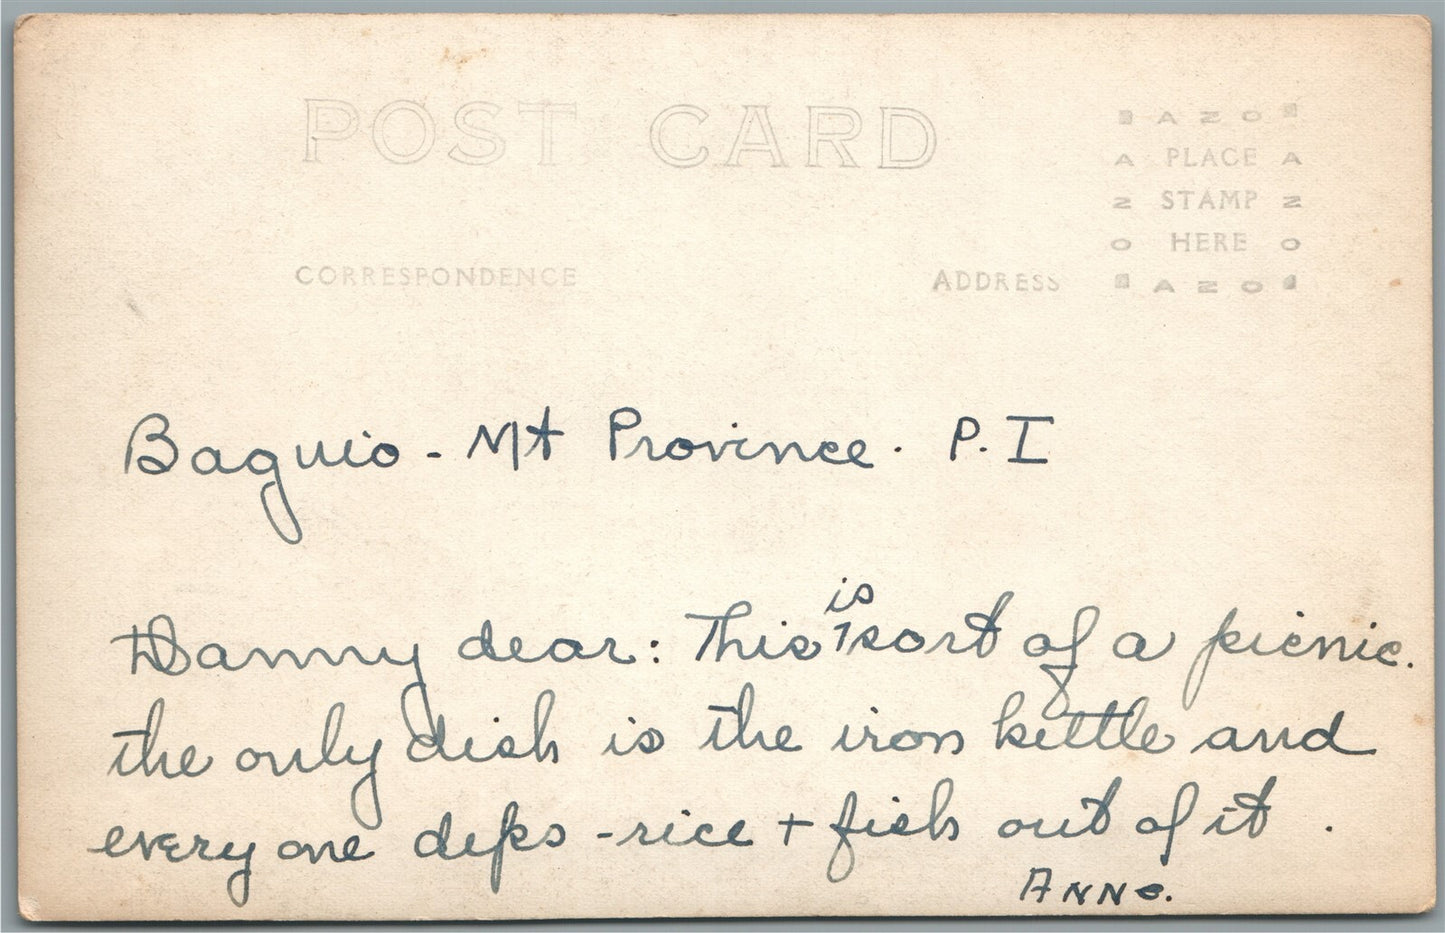 POST CARD
AZO
A PLACE A
Z STAMP Z
O HERE O
AZO
CORRESPONDENCE ADDRESS
Baguio - Mt Province. P. I
Danny dear: This is sort of a picnic.
the only dish is the iron kettle and
everyone dips - rice + fish out of it.
Anne.